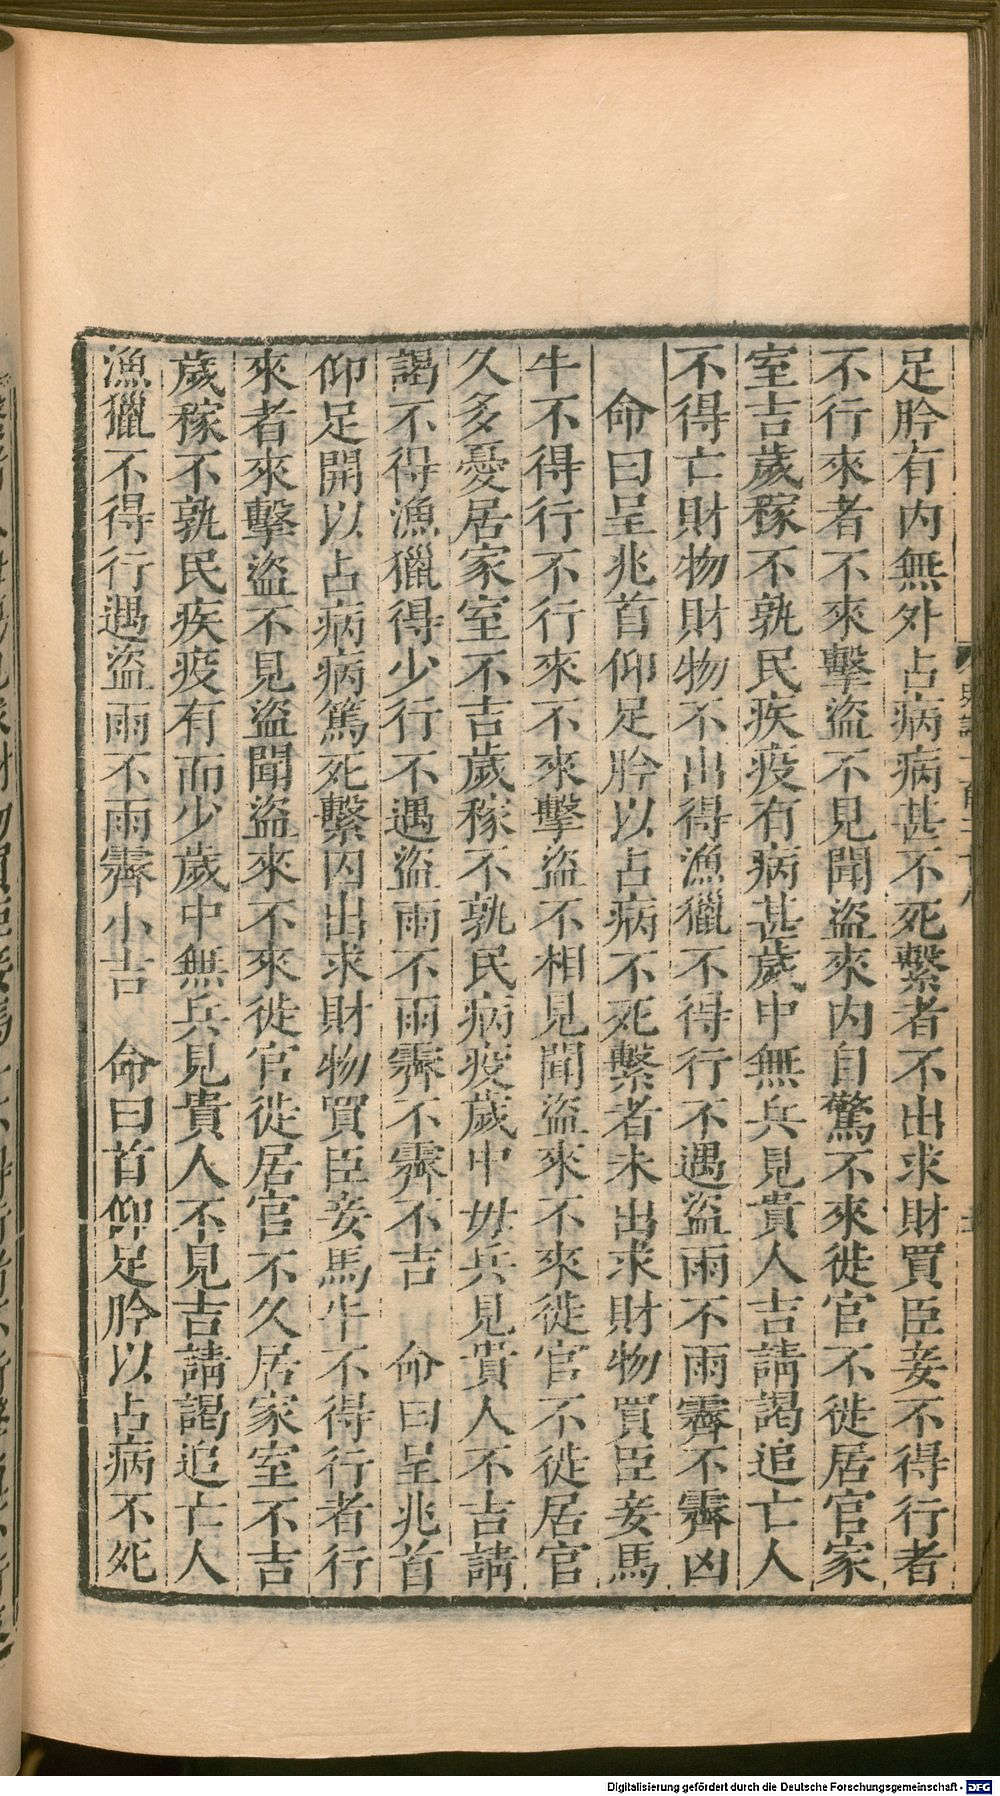 足肣有内無外占病病甚不死繫者不出求財買臣妾不得行者
不行來者不來擊盜不見聞盜來内自驚不來徙官不徙居官家
室吉歲稼不孰民疾疫有病甚歲中無兵見貴人吉請謁追亡人
不得亡財物財物不出得漁獵不得行不遇盜雨不雨霽不霽凶
命曰呈兆首仰足肣以占病不死繫者未出求財物買臣妾馬
牛不得行不行來不來擊盜不相見聞盜來不來徙官不徙居官
久多憂居家室不吉歲稼不孰民病疫歲中毋兵見貴人不吉請
謁不得漁獵得少行不遇盜雨不雨霽不霽不吉　命曰呈兆首
仰足開以占病病篤死繫囚出求財物買臣妾馬牛不得行者行
來者來擊盜不見盜聞盜來不來徙官徙居官不久居家室不吉
歲稼不孰民疾疫有而少歲中無兵見貴人不見吉請謁追亡人
漁獵不得行遇盜雨不雨霽小吉　命曰首仰足肣以占病不死
Digitalisierung gefördert durch die Deutsche Forschungsgemeinschaft - DFG